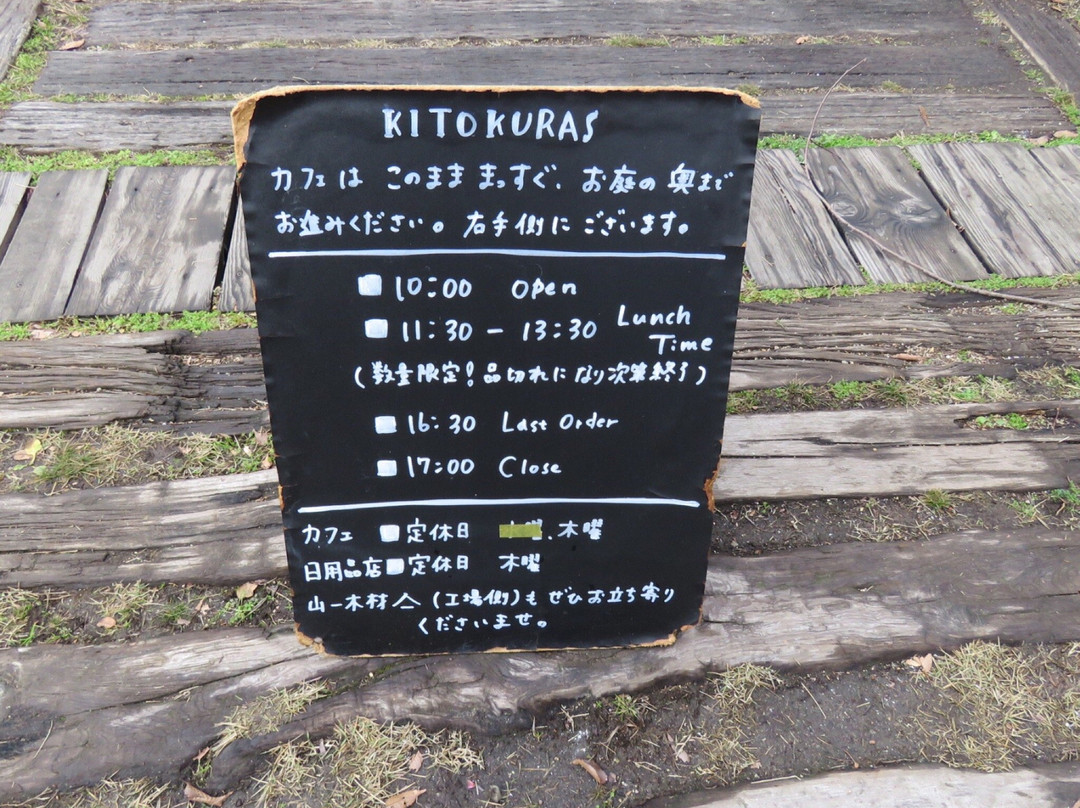 KITOKURAS
カフェは このまま まっすぐ、お庭の 奥まで
お進みください。右手側に ございます。
10:00 Open
11:30 - 13:30 Lunch Time
(数量限定! 品切れに なり次第終了)
16:30 Last Order
17:00 Close
カフェ 定休日 、木曜
日用品店 定休日 木曜
山一木材 (工場側)も ぜひお立ち寄り
くださいませ。